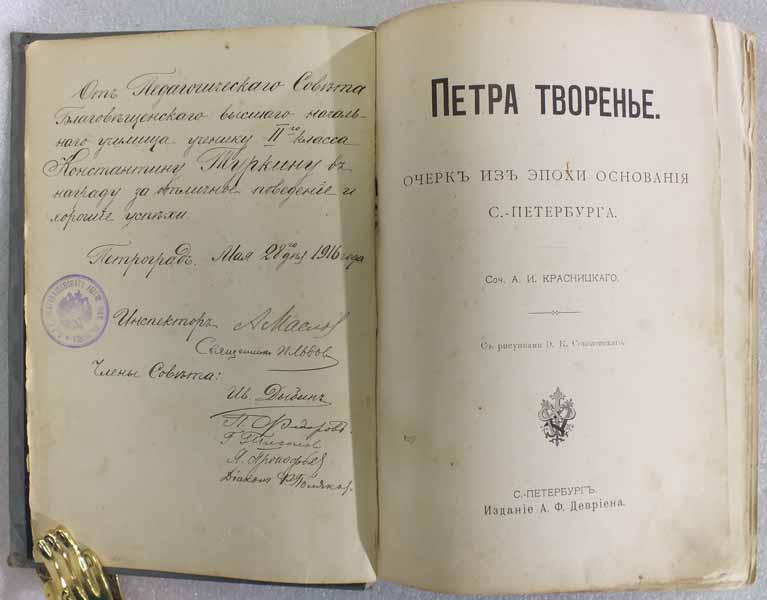 Отъ Педагогическаго Совѣта
Благовѣщенскаго высшаго началь-
наго училища ученику II го класса
Константину Туркину въ
награду за отличное поведеніе и
хорошіе успѣхи
Петроградъ. Мая 28 го дня 1916 года
Инспекторъ А Масло
Священникъ Львов
Члены Совѣта:
Ив. Дыбинъ
П. Федоровъ
Діаконъ Поляков
ПЕТРА ТВОРЕНЬЕ.
ОЧЕРКЪ ИЗЪ ЭПОХИ ОСНОВАНІЯ
С.-ПЕТЕРБУРГА.
Соч. А. И. КРАСНИЦКАГО.
Съ рисунками
С.-ПЕТЕРБУРГЪ.
Изданіе А. Ф. Девріена.